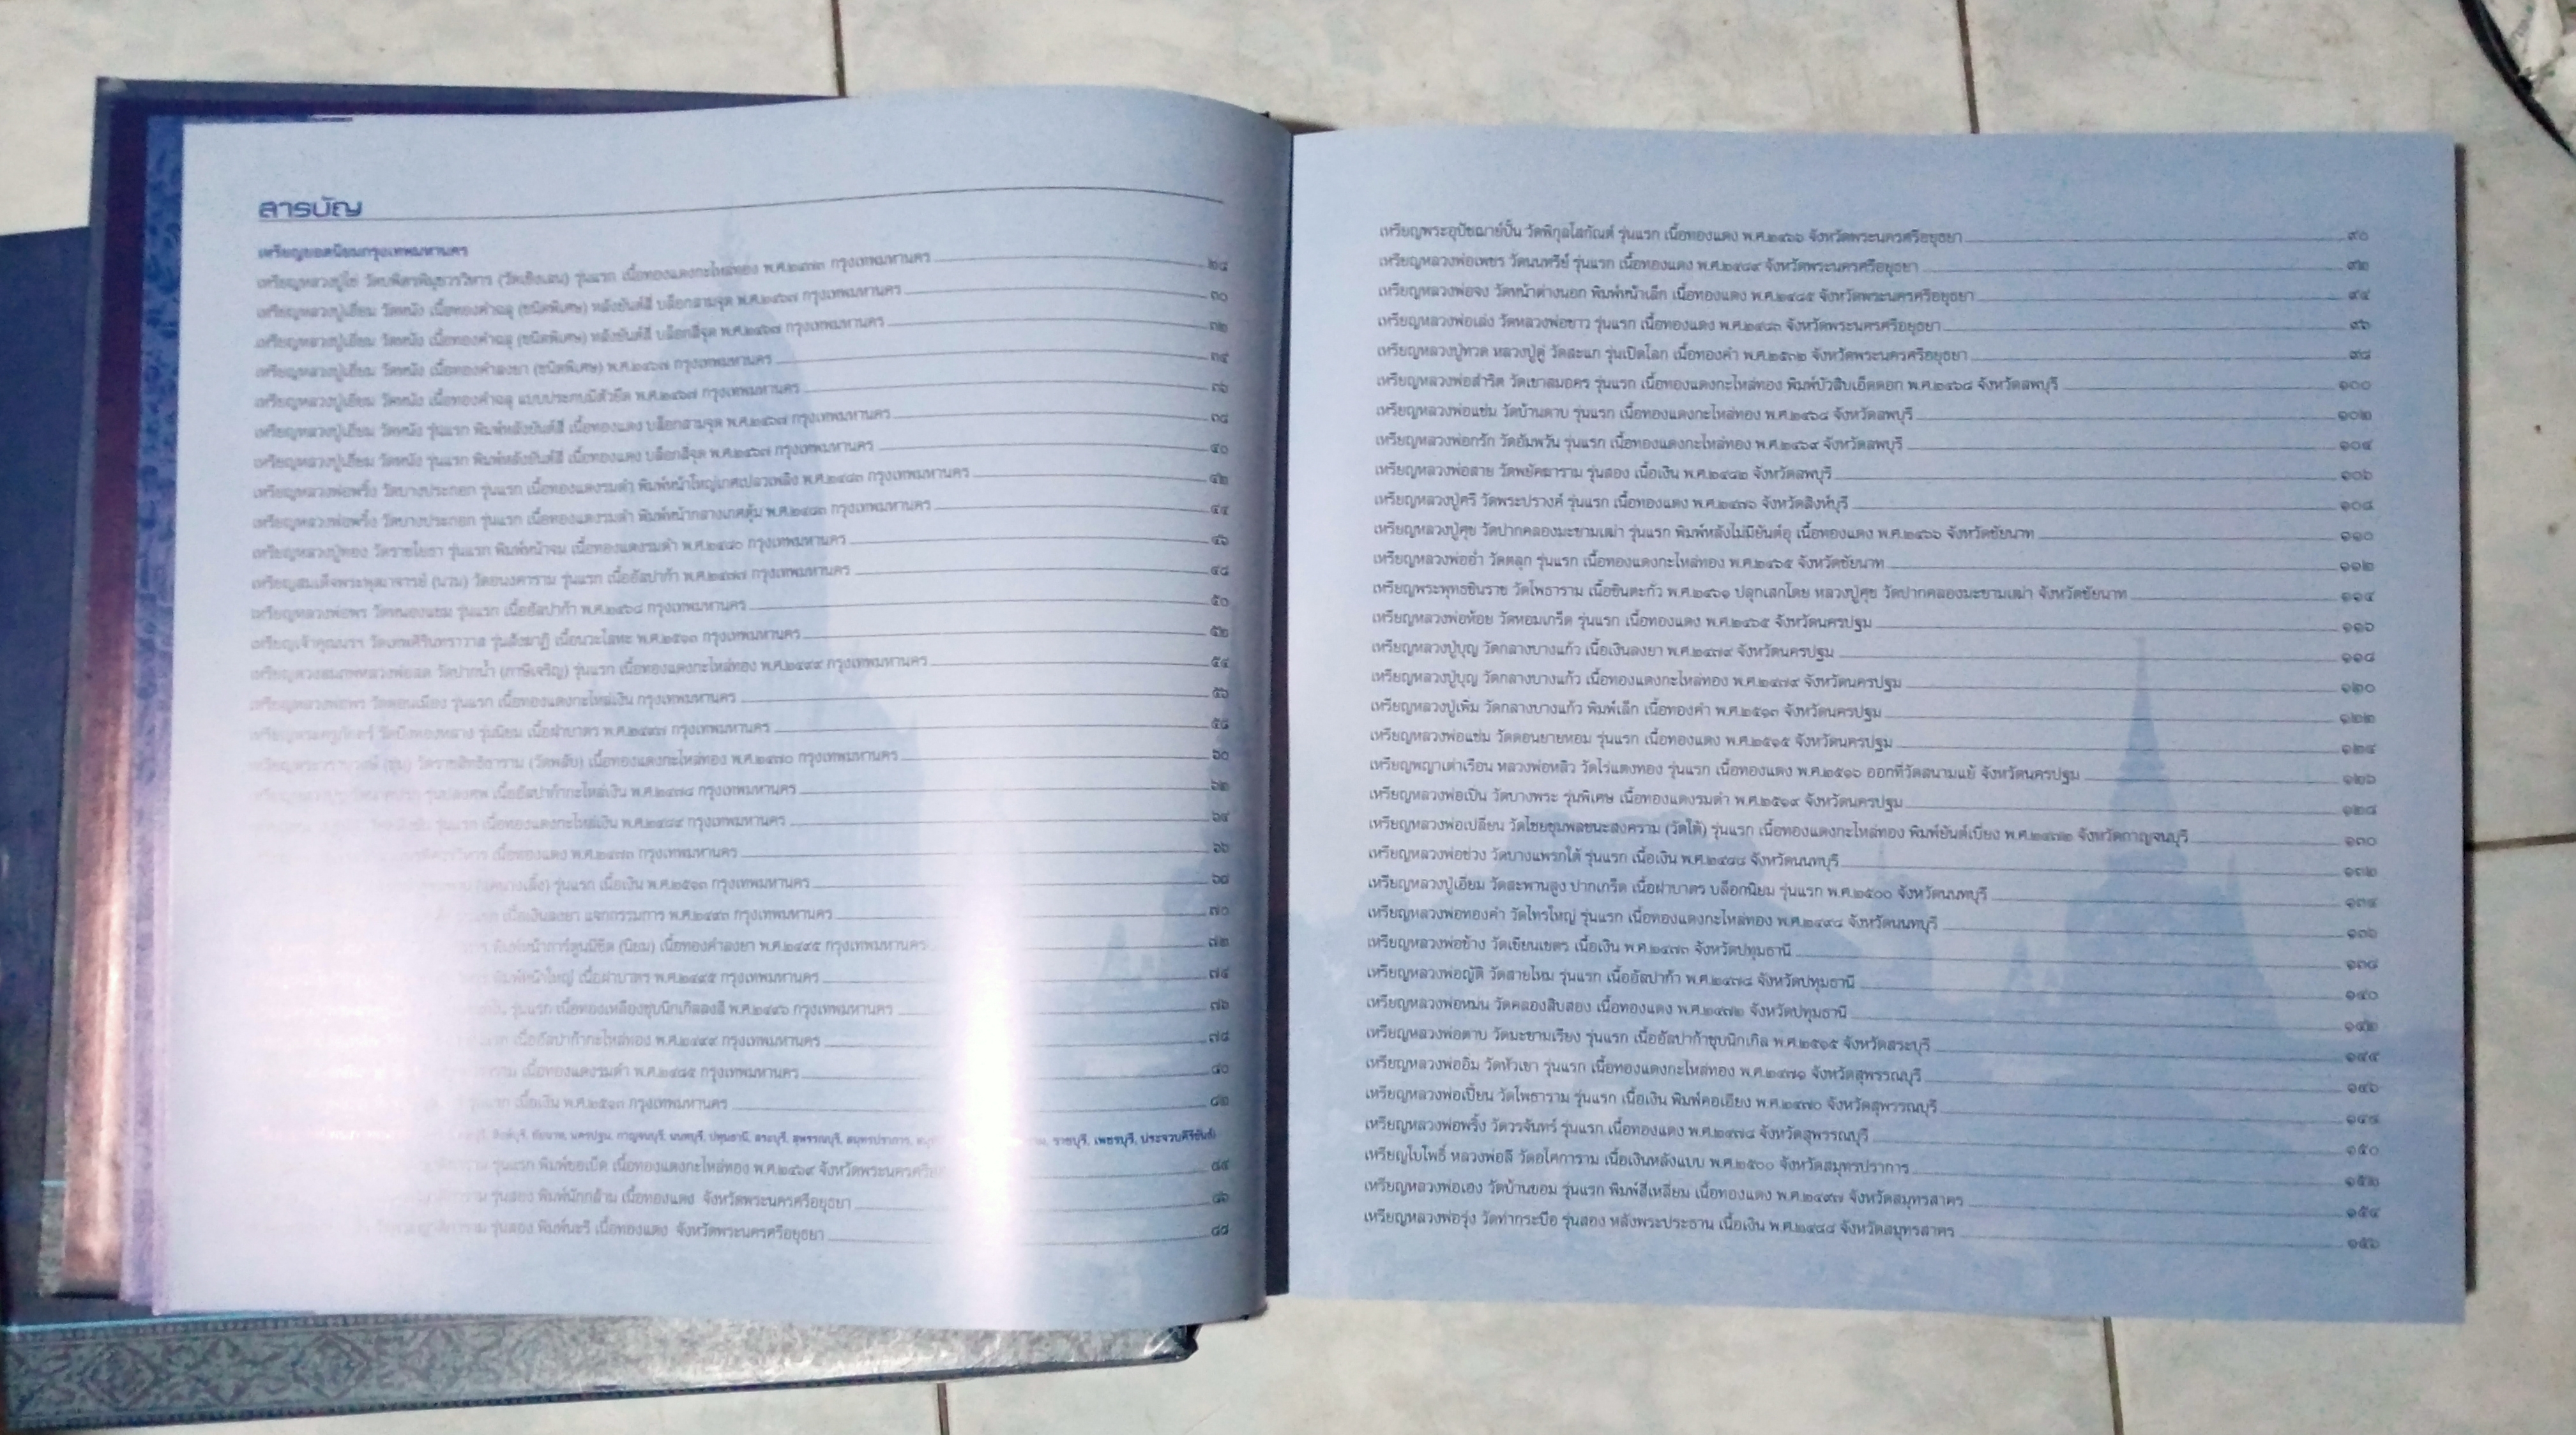 สารบัญ
เหรียญยอดนิยมกรุงเทพมหานคร
เหรียญหลวงปู่ไข่ วัดบพิตรพิมุขวรวิหาร (วัดเชิงเลน) รุ่นแรก เนื้อทองแดงกะไหล่ทอง พ.ศ.๒๔๗๓ กรุงเทพมหานคร ๒๘
เหรียญหลวงปู่เอี่ยม วัดหนัง เนื้อทองคำฉลุ (ชนิดพิเศษ) หลังยันต์สี่ บล็อกสามจุด พ.ศ.๒๔๖๗ กรุงเทพมหานคร ๓๐
เหรียญหลวงปู่เอี่ยม วัดหนัง เนื้อทองคำฉลุ (ชนิดพิเศษ) หลังยันต์สี่ บล็อกสี่จุด พ.ศ.๒๔๖๗ กรุงเทพมหานคร ๓๒
เหรียญหลวงปู่เอี่ยม วัดหนัง เนื้อทองคำลงยา (ชนิดพิเศษ) พ.ศ.๒๔๖๗ กรุงเทพมหานคร ๓๔
เหรียญหลวงปู่เอี่ยม วัดหนัง เนื้อทองคำฉลุ แบบประกบมีตัวยึด พ.ศ.๒๔๖๗ กรุงเทพมหานคร ๓๖
เหรียญหลวงปู่เอี่ยม วัดหนัง รุ่นแรก พิมพ์หลังยันต์สี่ เนื้อทองแดง บล็อกสามจุด พ.ศ.๒๔๖๗ กรุงเทพมหานคร ๓๘
เหรียญหลวงปู่เอี่ยม วัดหนัง รุ่นแรก พิมพ์หลังยันต์สี่ เนื้อทองแดง บล็อกสี่จุด พ.ศ.๒๔๖๗ กรุงเทพมหานคร ๔๐
เหรียญหลวงพ่อพริ้ง วัดบางปะกอก รุ่นแรก เนื้อทองแดงรมดำ พิมพ์หน้าใหญ่เกศเปลวเพลิง พ.ศ.๒๔๘๓ กรุงเทพมหานคร ๔๒
เหรียญหลวงพ่อพริ้ง วัดบางปะกอก รุ่นแรก เนื้อทองแดงรมดำ พิมพ์หน้ากลางเกศตุ้ม พ.ศ.๒๔๘๓ กรุงเทพมหานคร ๔๔
เหรียญหลวงปู่ทอง วัดราชโยธา รุ่นแรก พิมพ์หน้าจม เนื้อทองแดงรมดำ พ.ศ.๒๔๘๐ กรุงเทพมหานคร ๔๖
เหรียญสมเด็จพระพุฒาจารย์ (นวม) วัดอนงคาราม รุ่นแรก เนื้ออัลปาก้า พ.ศ.๒๔๗๗ กรุงเทพมหานคร ๔๘
เหรียญหลวงพ่อพร วัดหนองแขม รุ่นแรก เนื้ออัลปาก้า พ.ศ.๒๔๖๘ กรุงเทพมหานคร ๕๐
เหรียญเจ้าคุณนรฯ วัดเทพศิรินทราวาส รุ่นสังฆาฏิ เนื้อนวะโลหะ พ.ศ.๒๕๑๓ กรุงเทพมหานคร ๕๒
เหรียญดวงสมภพหลวงพ่อสด วัดปากน้ำ (ภาษีเจริญ) รุ่นแรก เนื้อทองแดงกะไหล่ทอง พ.ศ.๒๔๙๙ กรุงเทพมหานคร ๕๔
เหรียญหลวงพ่อพร วัดดอนเมือง รุ่นแรก เนื้อทองแดงกะไหล่เงิน กรุงเทพมหานคร ๕๖
เหรียญพระครูภักดร์ วัดบึงทองหลาง รุ่นนิยม เนื้อฝาบาตร พ.ศ.๒๔๙๗ กรุงเทพมหานคร ๕๘
(ชุ่ม) วัดราชสิทธิธาราม (วัดพลับ) เนื้อทองแดงกะไหล่ทอง พ.ศ.๒๔๗๐ กรุงเทพมหานคร ๖๐
เนื้ออัลปาก้ากะไหล่เงิน พ.ศ.๒๔๗๘ กรุงเทพมหานคร ๖๒
รุ่นแรก เนื้อทองแดงกะไหล่เงิน พ.ศ.๒๔๘๔ กรุงเทพมหานคร ๖๔
เนื้อทองแดง พ.ศ.๒๔๗๓ กรุงเทพมหานคร ๖๖
รุ่นแรก เนื้อเงิน พ.ศ.๒๕๑๓ กรุงเทพมหานคร ๖๘
เนื้อเงินลงยา แจกกรรมการ พ.ศ.๒๔๙๓ กรุงเทพมหานคร ๗๐
พิมพ์หน้าการ์ตูนมีขีด (นิยม) เนื้อทองคำลงยา พ.ศ.๒๔๙๕ กรุงเทพมหานคร ๗๒
พิมพ์หน้าใหญ่ เนื้อฝาบาตร พ.ศ.๒๔๙๕ กรุงเทพมหานคร ๗๔
รุ่นแรก เนื้อทองเหลืองชุบนิกเกิลลงสี พ.ศ.๒๔๙๖ กรุงเทพมหานคร ๗๖
เนื้ออัลปาก้ากะไหล่ทอง พ.ศ.๒๔๙๙ กรุงเทพมหานคร ๗๘
เนื้อทองแดงรมดำ พ.ศ.๒๔๘๕ กรุงเทพมหานคร ๘๐
เนื้อเงิน พ.ศ.๒๕๑๓ กรุงเทพมหานคร ๘๒
สิงห์บุรี, ชัยนาท, นครปฐม, กาญจนบุรี, นนทบุรี, ปทุมธานี, สระบุรี, สุพรรณบุรี, สมุทรปราการ, ราชบุรี, เพชรบุรี, ประจวบคีรีขันธ์)
รุ่นแรก พิมพ์ขอเบ็ด เนื้อทองแดงกะไหล่ทอง พ.ศ.๒๔๖๙ จังหวัดพระนครศรีอยุธยา ๘๔
รุ่นสอง พิมพ์นักกล้าม เนื้อทองแดง จังหวัดพระนครศรีอยุธยา ๘๖
รุ่นสอง พิมพ์นะรี เนื้อทองแดง จังหวัดพระนครศรีอยุธยา ๘๘
เหรียญพระอุปัชฌาย์ปั้น วัดพิกุลโสกัณต์ รุ่นแรก เนื้อทองแดง พ.ศ.๒๔๖๖ จังหวัดพระนครศรีอยุธยา ๙๐
เหรียญหลวงพ่อเพชร วัดนนทรีย์ รุ่นแรก เนื้อทองแดง พ.ศ.๒๔๘๙ จังหวัดพระนครศรีอยุธยา ๙๒
เหรียญหลวงพ่อจง วัดหน้าต่างนอก พิมพ์หน้าเล็ก เนื้อทองแดง พ.ศ.๒๔๘๕ จังหวัดพระนครศรีอยุธยา ๙๔
เหรียญหลวงพ่อเล่ง วัดหลวงพ่อขาว รุ่นแรก เนื้อทองแดง พ.ศ.๒๔๘๓ จังหวัดพระนครศรีอยุธยา ๙๖
เหรียญหลวงปู่ทวด หลวงปู่ดู่ วัดสะแก รุ่นเปิดโลก เนื้อทองคำ พ.ศ.๒๕๓๒ จังหวัดพระนครศรีอยุธยา ๙๘
เหรียญหลวงพ่อสำริด วัดเขาสมอคร รุ่นแรก เนื้อทองแดงกะไหล่ทอง พิมพ์บัวสิบเอ็ดดอก พ.ศ.๒๔๖๘ จังหวัดลพบุรี ๑๐๐
เหรียญหลวงพ่อแช่ม วัดบ้านดาบ รุ่นแรก เนื้อทองแดงกะไหล่ทอง พ.ศ.๒๔๖๘ จังหวัดลพบุรี ๑๐๒
เหรียญหลวงพ่อกรัก วัดอัมพวัน รุ่นแรก เนื้อทองแดงกะไหล่ทอง พ.ศ.๒๔๖๙ จังหวัดลพบุรี ๑๐๔
เหรียญหลวงพ่อสาย วัดพยัคฆาราม รุ่นสอง เนื้อเงิน พ.ศ.๒๔๘๒ จังหวัดลพบุรี ๑๐๖
เหรียญหลวงปู่ศรี วัดพระปรางค์ รุ่นแรก เนื้อทองแดง พ.ศ.๒๔๗๖ จังหวัดสิงห์บุรี ๑๐๘
เหรียญหลวงปู่ศุข วัดปากคลองมะขามเฒ่า รุ่นแรก พิมพ์หลังไม่มียันต์อุ เนื้อทองแดง พ.ศ.๒๔๖๖ จังหวัดชัยนาท ๑๑๐
เหรียญหลวงพ่ออ่ำ วัดตลุก รุ่นแรก เนื้อทองแดงกะไหล่ทอง พ.ศ.๒๔๖๕ จังหวัดชัยนาท ๑๑๒
เหรียญพระพุทธชินราช วัดโพธาราม เนื้อชินตะกั่ว พ.ศ.๒๔๖๑ ปลุกเสกโดย หลวงปู่ศุข วัดปากคลองมะขามเฒ่า จังหวัดชัยนาท ๑๑๔
เหรียญหลวงพ่อห้อย วัดหอมเกร็ด รุ่นแรก เนื้อทองแดง พ.ศ.๒๔๖๕ จังหวัดนครปฐม ๑๑๖
เหรียญหลวงปู่บุญ วัดกลางบางแก้ว เนื้อเงินลงยา พ.ศ.๒๔๗๙ จังหวัดนครปฐม ๑๑๘
เหรียญหลวงปู่บุญ วัดกลางบางแก้ว เนื้อทองแดงกะไหล่ทอง พ.ศ.๒๔๗๙ จังหวัดนครปฐม ๑๒๐
เหรียญหลวงปู่เพิ่ม วัดกลางบางแก้ว พิมพ์เล็ก เนื้อทองคำ พ.ศ.๒๕๑๓ จังหวัดนครปฐม ๑๒๒
เหรียญหลวงพ่อแช่ม วัดดอนยายหอม รุ่นแรก เนื้อทองแดง พ.ศ.๒๕๑๕ จังหวัดนครปฐม ๑๒๔
เหรียญพญาเต่าเรือน หลวงพ่อหลิว วัดไร่แตงทอง รุ่นแรก เนื้อทองแดง พ.ศ.๒๕๑๖ ออกที่วัดสนามแย้ จังหวัดนครปฐม ๑๒๖
เหรียญหลวงพ่อเปิ่น วัดบางพระ รุ่นพิเศษ เนื้อทองแดงรมดำ พ.ศ.๒๕๑๙ จังหวัดนครปฐม ๑๒๘
เหรียญหลวงพ่อเปลี่ยน วัดไชยชุมพลชนะสงคราม (วัดใต้) รุ่นแรก เนื้อทองแดงกะไหล่ทอง พิมพ์ยันต์เบี่ยง พ.ศ.๒๔๗๒ จังหวัดกาญจนบุรี ๑๓๐
เหรียญหลวงพ่อช่วง วัดบางแพรกใต้ รุ่นแรก เนื้อเงิน พ.ศ.๒๔๘๘ จังหวัดนนทบุรี ๑๓๒
เหรียญหลวงปู่เอี่ยม วัดสะพานสูง ปากเกร็ด เนื้อฝาบาตร บล็อกนิยม รุ่นแรก พ.ศ.๒๕๐๐ จังหวัดนนทบุรี ๑๓๔
เหรียญหลวงพ่อทองคำ วัดไทรใหญ่ รุ่นแรก เนื้อทองแดงกะไหล่ทอง พ.ศ.๒๔๙๘ จังหวัดนนทบุรี ๑๓๖
เหรียญหลวงพ่อช้าง วัดเขียนเขตร เนื้อเงิน พ.ศ.๒๔๗๓ จังหวัดปทุมธานี ๑๓๘
เหรียญหลวงพ่อญัติ วัดสายไหม รุ่นแรก เนื้ออัลปาก้า พ.ศ.๒๔๗๘ จังหวัดปทุมธานี ๑๔๐
เหรียญหลวงพ่อหม่น วัดคลองสิบสอง เนื้อทองแดง พ.ศ.๒๔๗๒ จังหวัดปทุมธานี ๑๔๒
เหรียญหลวงพ่อตาบ วัดมะขามเรียง รุ่นแรก เนื้ออัลปาก้าชุบนิกเกิล พ.ศ.๒๕๑๕ จังหวัดสระบุรี ๑๔๔
เหรียญหลวงพ่ออิ่ม วัดหัวเขา รุ่นแรก เนื้อทองแดงกะไหล่ทอง พ.ศ.๒๔๗๑ จังหวัดสุพรรณบุรี ๑๔๖
เหรียญหลวงพ่อเปี้ยน วัดโพธาราม รุ่นแรก เนื้อเงิน พิมพ์คอเอียง พ.ศ.๒๔๗๐ จังหวัดสุพรรณบุรี ๑๔๘
เหรียญหลวงพ่อพริ้ง วัดวรจันทร์ รุ่นแรก เนื้อทองแดง พ.ศ.๒๔๗๘ จังหวัดสุพรรณบุรี ๑๕๐
เหรียญใบโพธิ์ หลวงพ่อลี วัดอโศการาม เนื้อเงินหลังแบบ พ.ศ.๒๕๐๐ จังหวัดสมุทรปราการ ๑๕๒
เหรียญหลวงพ่อเฮง วัดบ้านขอม รุ่นแรก พิมพ์สี่เหลี่ยม เนื้อทองแดง พ.ศ.๒๔๙๗ จังหวัดสมุทรสาคร ๑๕๔
เหรียญหลวงพ่อรุ่ง วัดท่ากระบือ รุ่นสอง หลังพระประธาน เนื้อเงิน พ.ศ.๒๔๘๘ จังหวัดสมุทรสาคร ๑๕๖